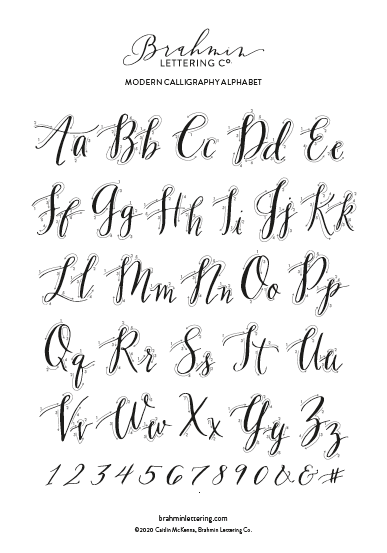 Brahmin
LETTERING Co.
MODERN CALLIGRAPHY ALPHABET
Aa Bb Cc Dd Ee
Ff Gg Hh Ii Jj Kk
Ll Mm Nn Oo Pp
Qq Rr Ss Tt Uu
Vv Ww Xx Yy Zz
1 2 3 4 5 6 7 8 9 0 & & #
brahminlettering.com
©2020 Caitlin McKenna, Brahmin Lettering Co.